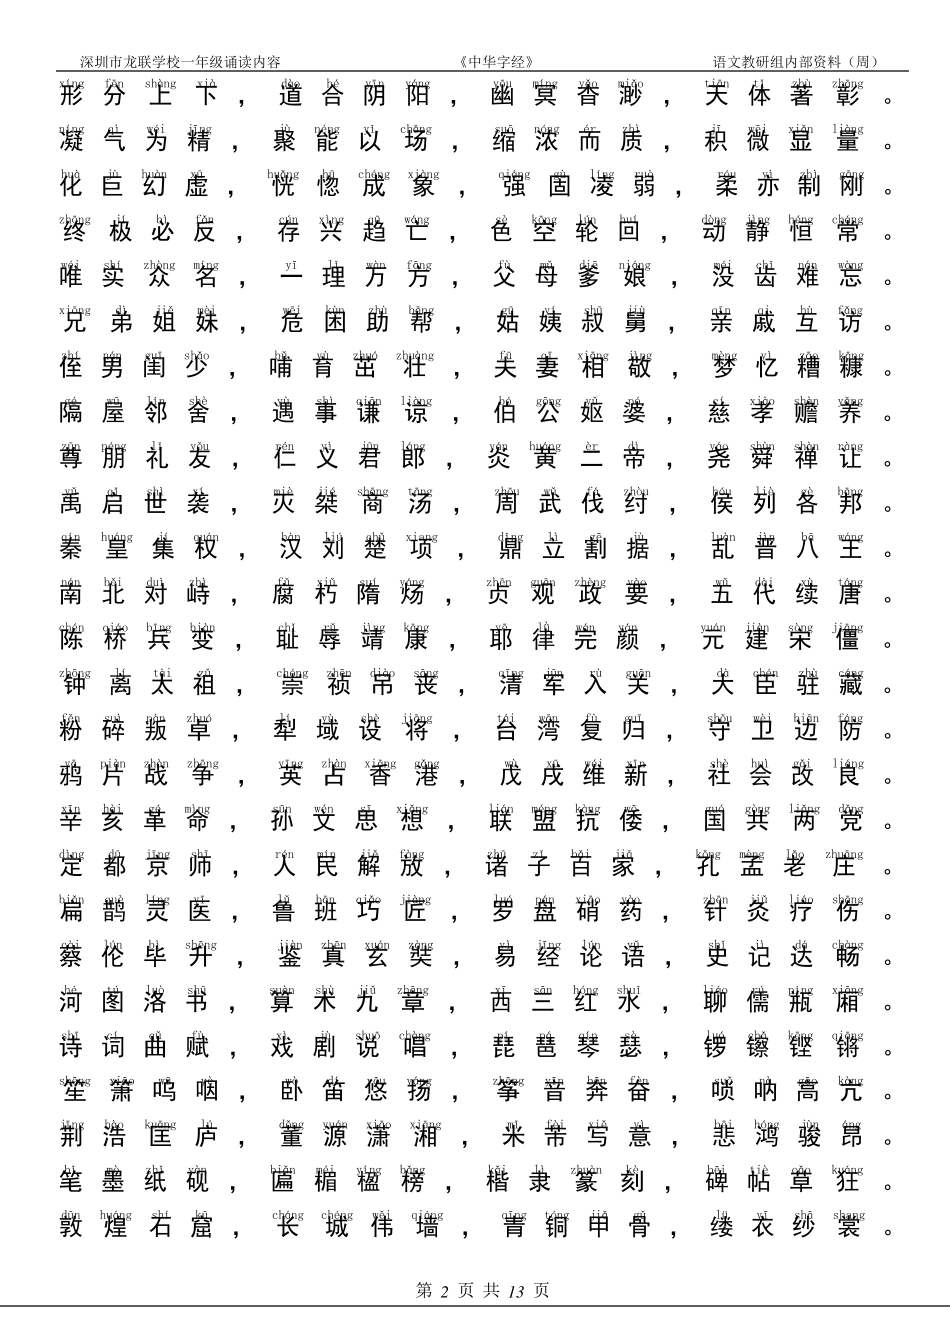 深圳市龙联学校一年级诵读内容 《中华字经》 语文教研组内部资料（周）
形分上下，道合阴阳，幽冥杳渺，天体著彰。
凝气为精，聚能以场，缩浓而质，积微显量。
化巨幻虚，恍惚成象，强固凌弱，柔亦制刚。
终极必反，存兴趋亡，色空轮回，动静恒常。
唯实众名，一理万方，父母爹娘，没齿难忘。
兄弟姐妹，危困助帮，姑姨叔舅，亲戚互访。
侄男闺少，哺育茁壮，夫妻相敬，梦忆糟糠。
隔屋邻舍，遇事谦谅，伯公妪婆，慈孝赡养。
尊朋礼友，仁义君郎，炎黄二帝，尧舜禅让。
禹启世袭，灭桀商汤，周武伐纣，侯列各邦。
秦皇集权，汉刘楚项，鼎立割据，乱晋八王。
南北对峙，腐朽隋炀，贞观政要，五代续唐。
陈桥兵变，耻辱靖康，耶律完颜，元建宋僵。
钟离太祖，崇祯吊丧，清军入关，大臣驻藏。
粉碎叛卓，犁域设将，台湾复归，守卫边防。
鸦片战争，英占香港，戊戌维新，社会改良。
辛亥革命，孙文思想，联盟抗倭，国共两党。
定都京师，人民解放，诸子百家，孔孟老庄。
扁鹊灵医，鲁班巧匠，罗盘硝药，针灸疗伤。
蔡伦毕升，鉴真玄奘，易经论语，史记达畅。
河图洛书，算术九章，西三红水，聊儒瓶厢。
诗词曲赋，戏剧说唱，琵琶琴瑟，锣镲铿锵。
笙箫呜咽，卧笛悠扬，筝音奔奋，唢呐高亢。
荆浩匡庐，董源潇湘，米芾写意，悲鸿骏昂。
笔墨纸砚，匾楣楹榜，楷隶篆刻，碑帖草狂。
敦煌石窟，长城伟墙，青铜甲骨，缕衣纱裳。
第 2 页 共 13 页